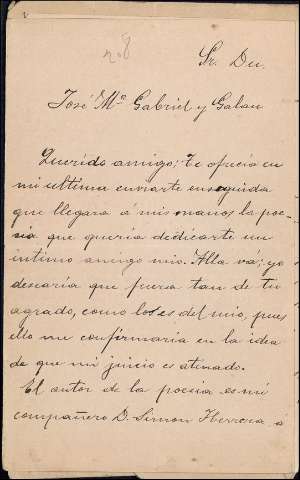 n. 8
Sr. Dn.
José Mª Gabriel y Galan
Querido amigo: Te ofrecia en
mi ultima enviarte enseguida
que llegara á mis manos la poe-
sia que queria dedicarte un
intimo amigo mio. Alla va; yo
desearia que fuera tan de tu
agrado, como lo es del mio, pues
ello me confirmaria en la idea
de que mi juicio es atinado.
El autor de la poesia es mi
compañero D. Simon Herrera, a